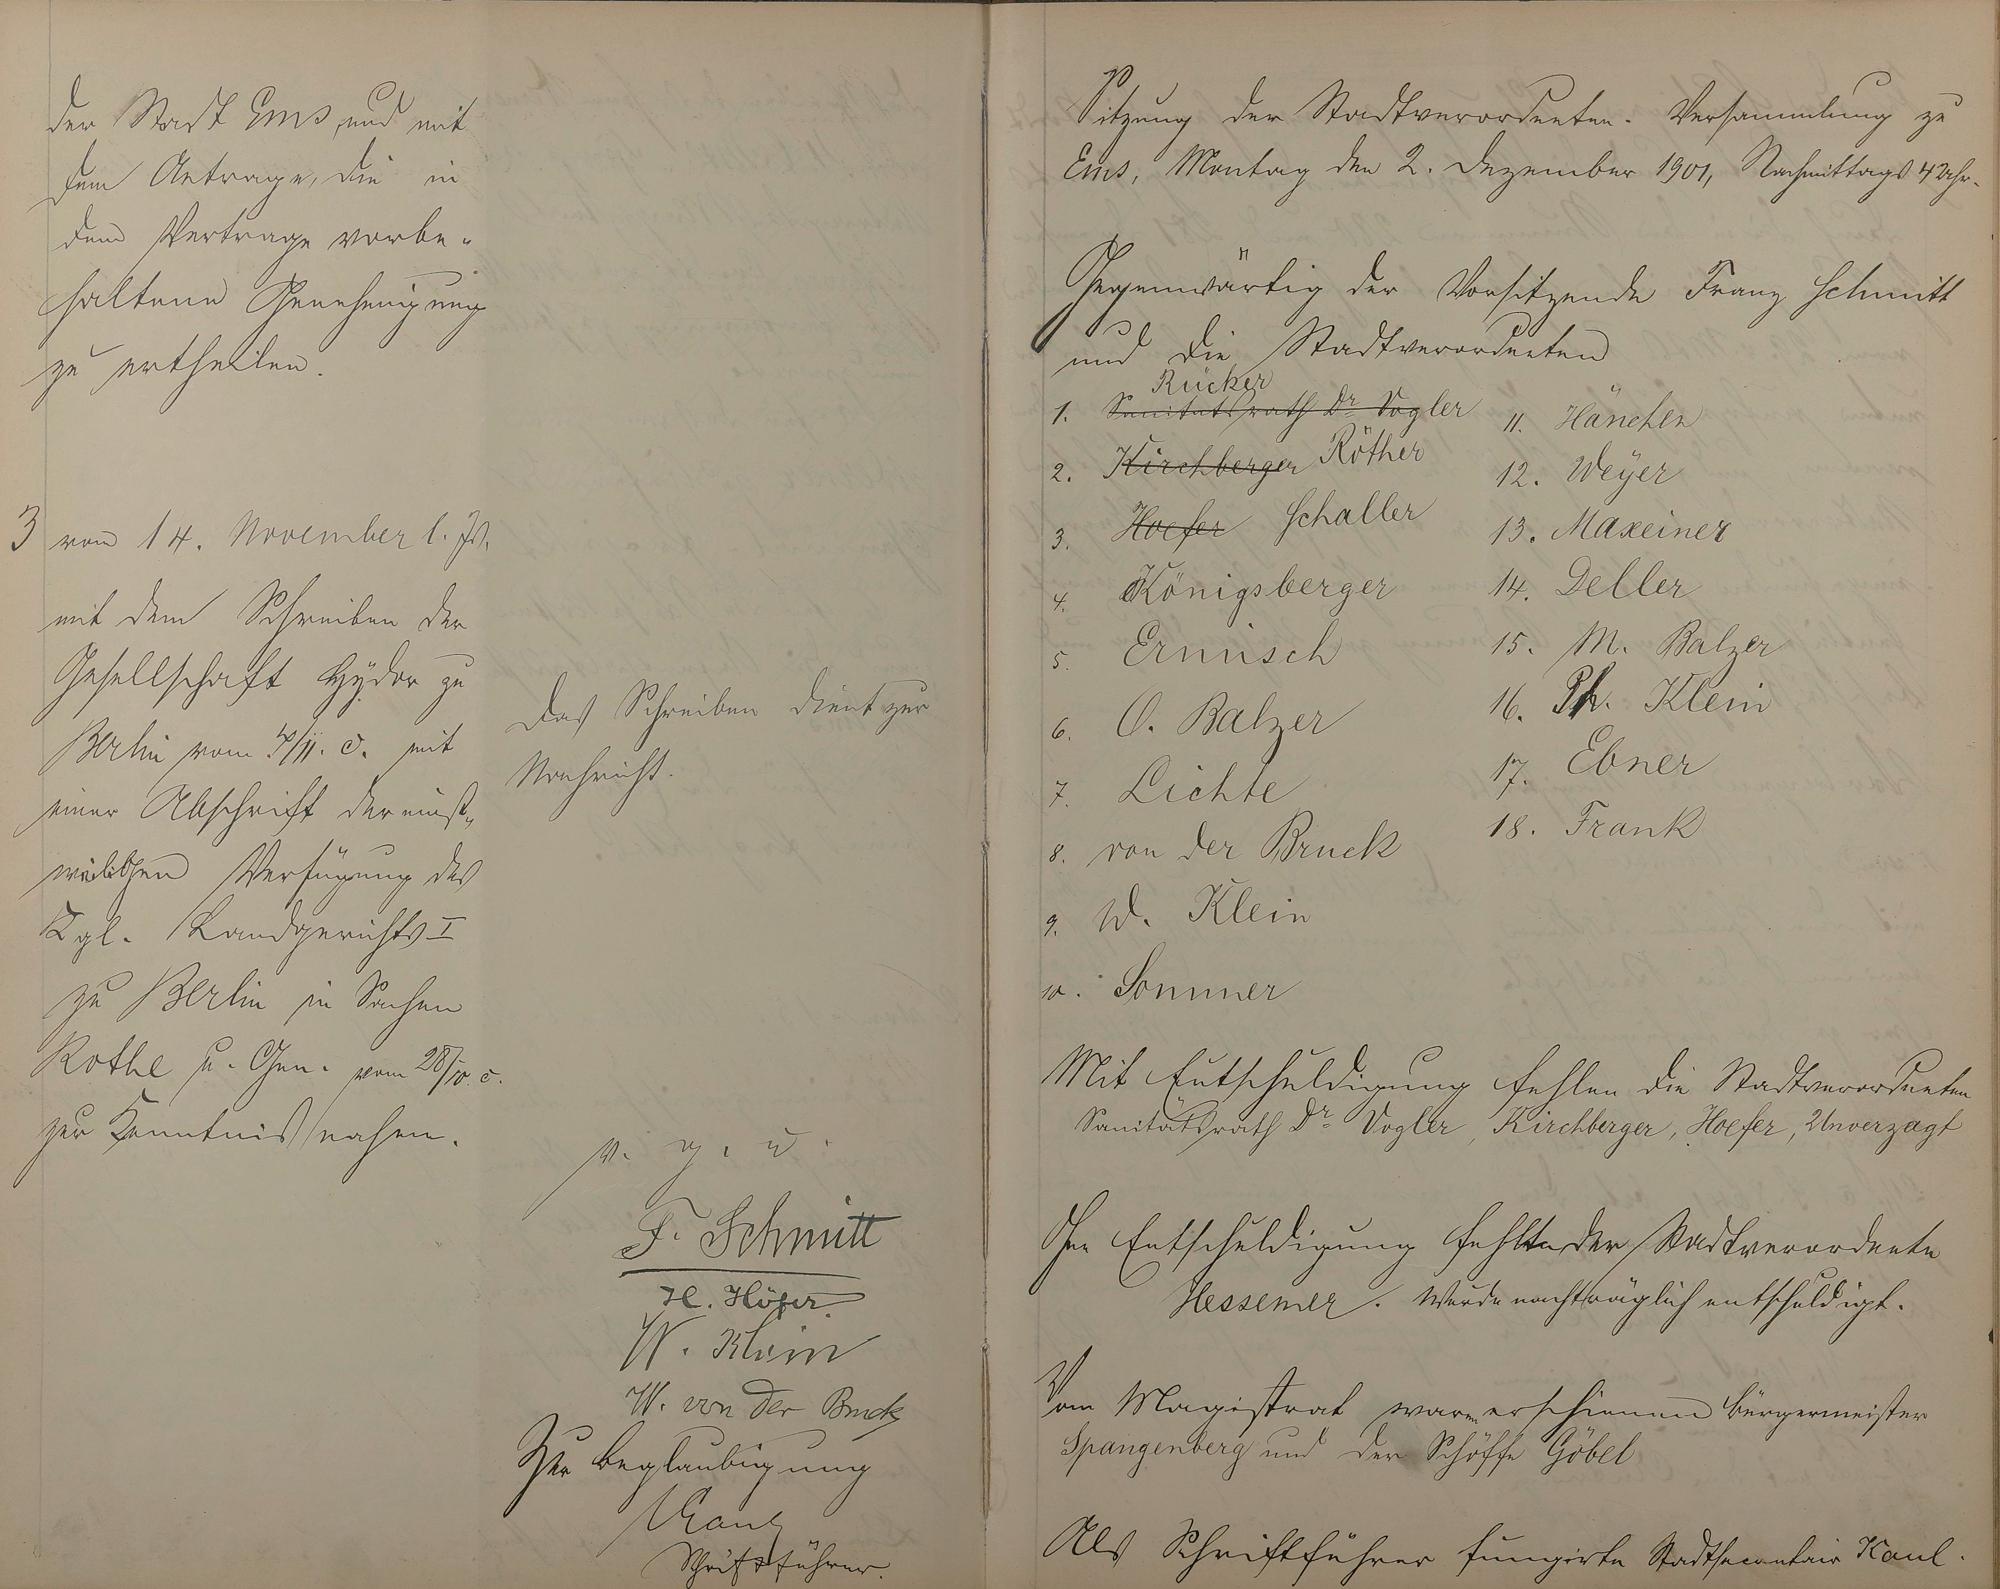 der Stadt Ems und mit
dem Antrage, die in
dem Vertrage vorbe-
haltene Genehmigung
zu ertheilen.
3 vom 14. November l. Js.
mit dem Schreiben der
Gesellschaft Hydor zu
Berlin vom 7/11. c. mit
einer Abschrift der einst-
weiligen Verfügung des
Kgl. Landgerichts I
zu Berlin in Sachen
Rothe u. Gen. vom 28/10. c.
zur Kenntnißnahme.
Das Schreiben dient zur
Nachricht.
v. g. u.
F. Schmitt
H. Höfer
W. Klein
W. von der Bruck
Zur Beglaubigung
Kaul
Schriftführer.
Sitzung der Stadtverordneten-Versammlung zu
Ems, Montag den 2. Dezember 1901, Nachmittags 4 Uhr.
Gegenwärtig der Vorsitzende Franz Schmitt
und die Stadtverordneten
Rücker
1. Sanitätsrath Dr Vogler
2. Kirchberger Röther
3. Hoefer Schaller
4. Königsberger
5. Ermisch
6. O. Balzer
7. Lichte
8. von der Bruck
9. W. Klein
10. Sommer
11. Hänchen
12. Weyer
13. Maxeiner
14. Deller
15. M. Balzer
16. Ph. Klein
17. Ebner
18. Frank
Mit Entschuldigung fehlen die Stadtverordneten
Sanitätsrath Dr Vogler, Kirchberger, Hoefer, Unverzagt
Ohne Entschuldigung fehlte der Stadtverordnete
Hessemer. Wurde nachträglich entschuldigt.
Vom Magistrat waren erschienen Bürgermeister
Spangenberg und der Schöffe Göbel
Als Schriftführer fungirte Stadtsecretair Kaul.